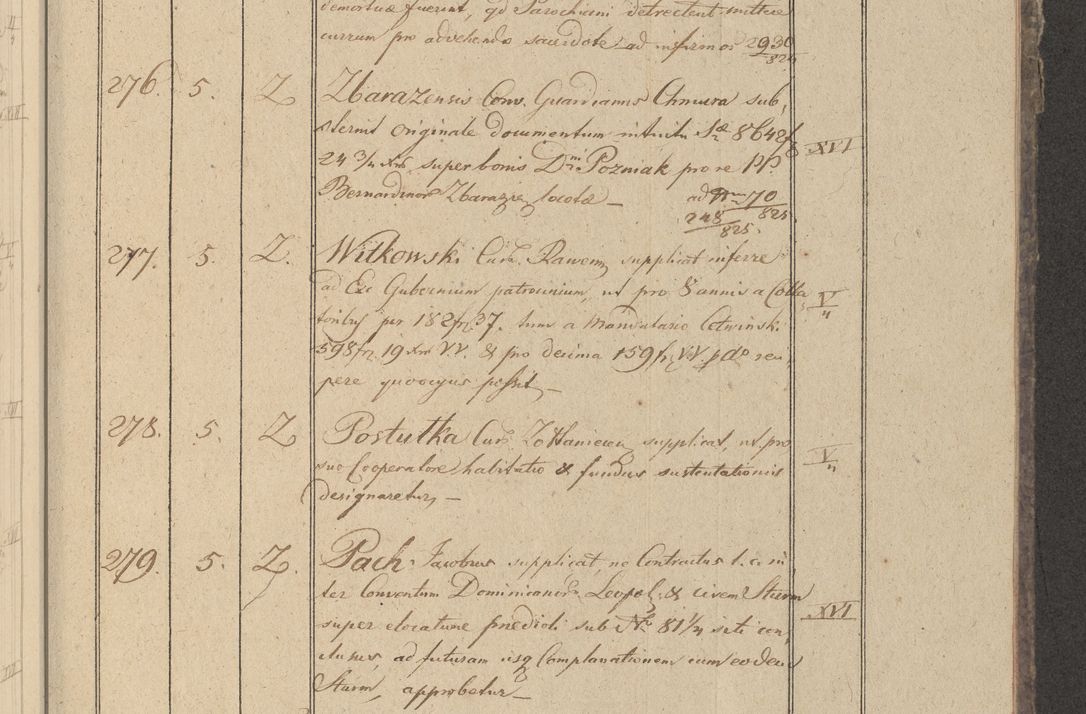 demortuæ fuerint, qd Parochiani detrectent mittere
currum pro advehendo sacerdote ad infirmos 2930/824
276. 5. Z Zbarazensis Conv. Guardianus Chmura sub,
sternit originale documentum intuitu Sæ 8642f
24 3/4 xr super bonis Dni Pozniak pro re PP. XVI
Bernardinor Zbaraziæ locatæ — ad 70/825
248/825.
277. 5. Z. Witkowski Cur. Rawen, supplicat inferre
ad Exc Gubernium patrocinium, ut pro 8 annis a Colla, V/4
toribus per 182 fr 37. tum a Mandatario Cetwinski
598 fr 19 xr VV. & pro decima 159 fr VV. reci,
pere quocyus possit —
278. 5. Z Postutka Cur. supplicat, ut pro
suo Cooperatore habitatio & fundus sustentationis V/4
designaretur, —
279. 5. Z. Pach Jacobus supplicat, ne Contractus in,
ter Conventum Dominicanor Leopol: & civem Sturm
super elocatione prædioli sub Nr 81 1/4 siti con, XVI
clusus, ad futuram usq Complanationem cum eodem
Sturm, approbetur —